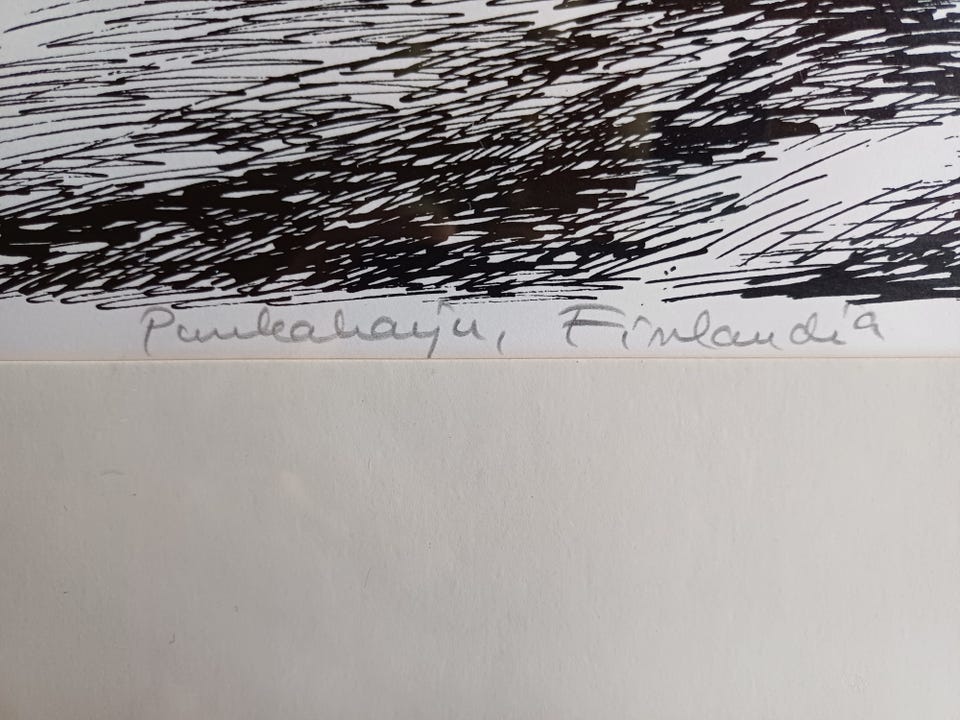 Punkaharju, Finlandia